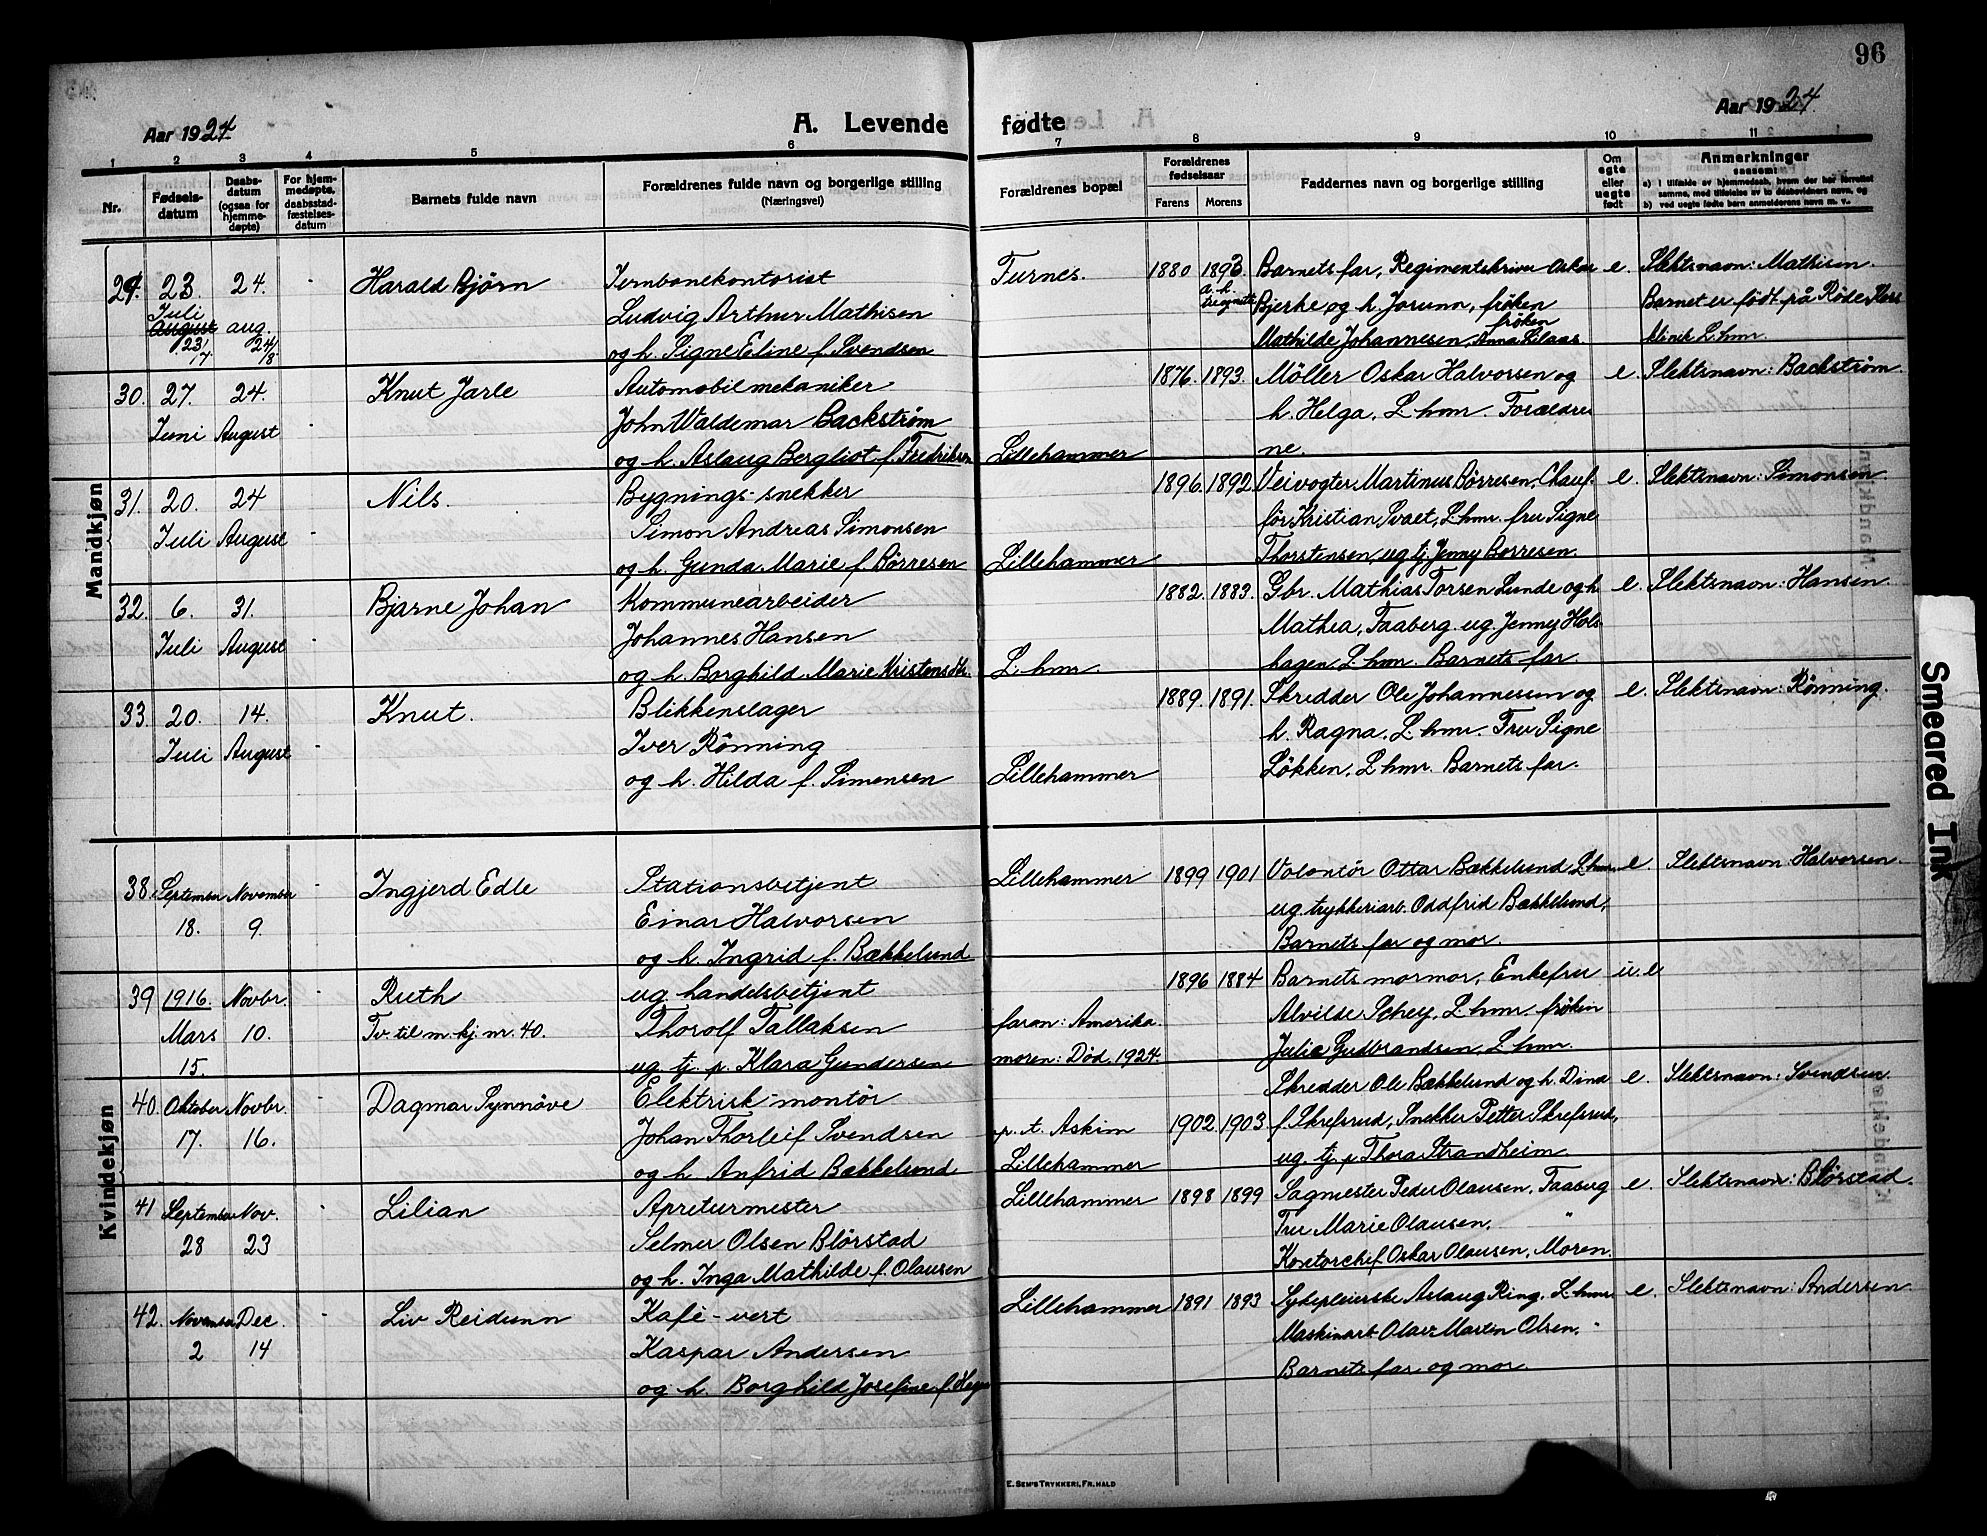 96
Aar 1924
A. Levende fødte
Aar 1924
1 2 3 4 5 6 7 8 9 10 11
Nr.
Fødsels-
datum
Daabs-
datum
(ogsaa for
hjemme-
døpte)
For hjem-
medøpte,
daabsstad-
fæstelses-
datum
Barnets fulde navn
Forældrenes fulde navn og borgerlige stilling
(Næringsvei)
Forældrenes bopæl
Forældrenes
fødselsaar
Farens Morens
Faddernes navn og borgerlige stilling
Om
egte
eller
uegte
født
Anmerkninger
saasom:
a) i tilfælde av hjemmedaab, hvem der har forrettet
samme, med tilføielse av to daabsvidners navn, og
b) ved uegte fødte barn anmelderens navn m. v.
Mandkjøn
29. 23. 24. Harald Bjørn Jernbanekontorist Furnes. 1880 1893 Barnets far, Regimentskriver Oskar e. Slektsnavn: Mathisen.
Juli
August aug. Ludvig Arthur Mathisen Bjerke og h. Jorunn, frøken Barnet er født på Røde Kors
23/7 24/8 og h. Signe Eline f. Svendsen Mathilde Johannesen, frøken Anna Lilaas. klinik L.hmr.
30. 27. 24. Knut Jarle Automobilmekaniker 1876. 1893. Møller Oskar Halvorsen og e. Slektsnavn: Backstrøm
Juni August John Waldemar Backstrøm h. Helga, L.hmr. Forældre
og h. Aslaug Bergliot f. Fredriksen Lillehammer ne.
31. 20. 24 Nils. Bygnings-snekker 1896. 1892. Veivogter Martinus Børresen, Chauf- e. Slektsnavn: Simonsen
Juli August Simon Andreas Simonsen før Kristian Svaet, L.hmr. fru Signe
og h. Gunda Marie f. Børresen Lillehammer Thorstensen, ug. tj. Jenny Borresen.
32. 6. 31. Bjarne Johan Kommunearbeider 1882. 1883. Gbr. Mathias Torsen Lunde og h. e. Slektsnavn: Hansen
Juli August Johannes Hansen Mathea, Faaberg. ug. Jenny Hols-
og h. Borghild Marie Kristensdtr. L.hmr. hagen L.hmr. Barnets far.
33. 20. 14. Knut. Blikkenslager 1889. 1891. Skredder Ole Johannessen og e. Slektsnavn: Rønning.
Juli August Iver Rønning h. Ragna, L.hmr. Fru Signe
og h. Hilda f. Simensen Lillehammer Løkken, L.hmr. Barnets far.
Kvindekjøn
38. September November Ingjerd Edle Stationsbetjent Lillehammer 1899 1901 Volontør Ottar Bækkelund L.hmr. e. Slektsnavn Halvorsen
18. 9. Einar Halvorsen ug. trykkeriarb. Oddfrid Bækkelund,
og h. Ingrid f. Bækkelund Barnets far og mor.
39 1916. Novbr. Ruth ug. handelsbetjent 1896 1884 Barnets mormor, Enkefru u.e
Mars 10. Tv. til m. kj. nr. 40. Thorolf Tallaksen faren: Amerika. Alvilde Schey, L.hmr. frøken
15. ug. tj. p. Klara Gundersen moren: Død. 1924. Julie Gudbrandsen, L.hmr.
40. Oktober Novbr. Dagmar Synnøve Elektrisk-montør Skredder Ole Bækkelund og h. Dina e. Slektsnavn: Svendsen.
17. 16. Johan Thorleif Svendsen p. t. Askim 1902. 1903 f. Skrefsrud, Snekker Petter Skrefsrud,
og h. Anfrid Bækkelund Lillehammer ug. tj. p. Thora Strandheim.
41 September Nov. Lilian Apreturmester Lillehammer 1898 1899 Sagmester Peder Olausen, Faaberg e. Slektsnavn: Blørstad.
28 23 Selmer Olsen Blørstad Fru Marie Olausen, "
og h. Inga Mathilde f. Olausen Kontorchef Oskar Olausen, Moren.
42. November Dec. Liv Reidunn Kafé-vert Lillehammer 1891 1893 Sykepleierske Aslaug Ring, L.hmr. e. Slektsnavn: Andersen
2 14 Kaspar Andersen Maskinarb. Olav Martin Olsen, "
og h. Borghild Josefine f. Barnets far og mor.
E. SEM'S TRYKKERI, FR.HALD
Smeared Ink